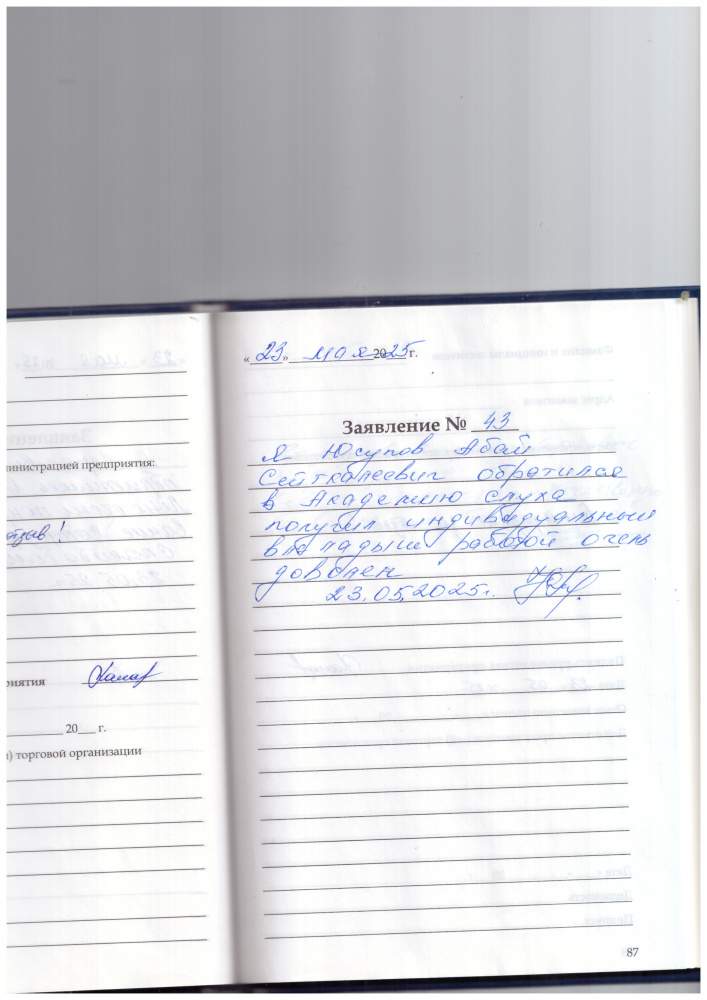 министрацией предприятия:
отзыв!
риятия
20___ г.
) торговой организации
« 23 » мая 2025 г.
Заявление № 43
Я Юсупов Абай
Сейткалеевич обратился
в Академию слуха
получил индивидуальный
вкладыш работой очень
доволен
23.05.2025г.
87